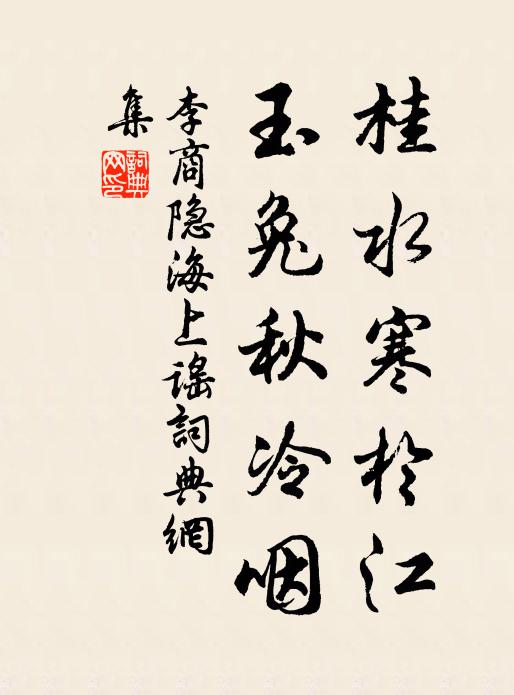 桂水寒於江
玉兔秋冷咽
李商隐海上谣詞典網
集
詞典网印